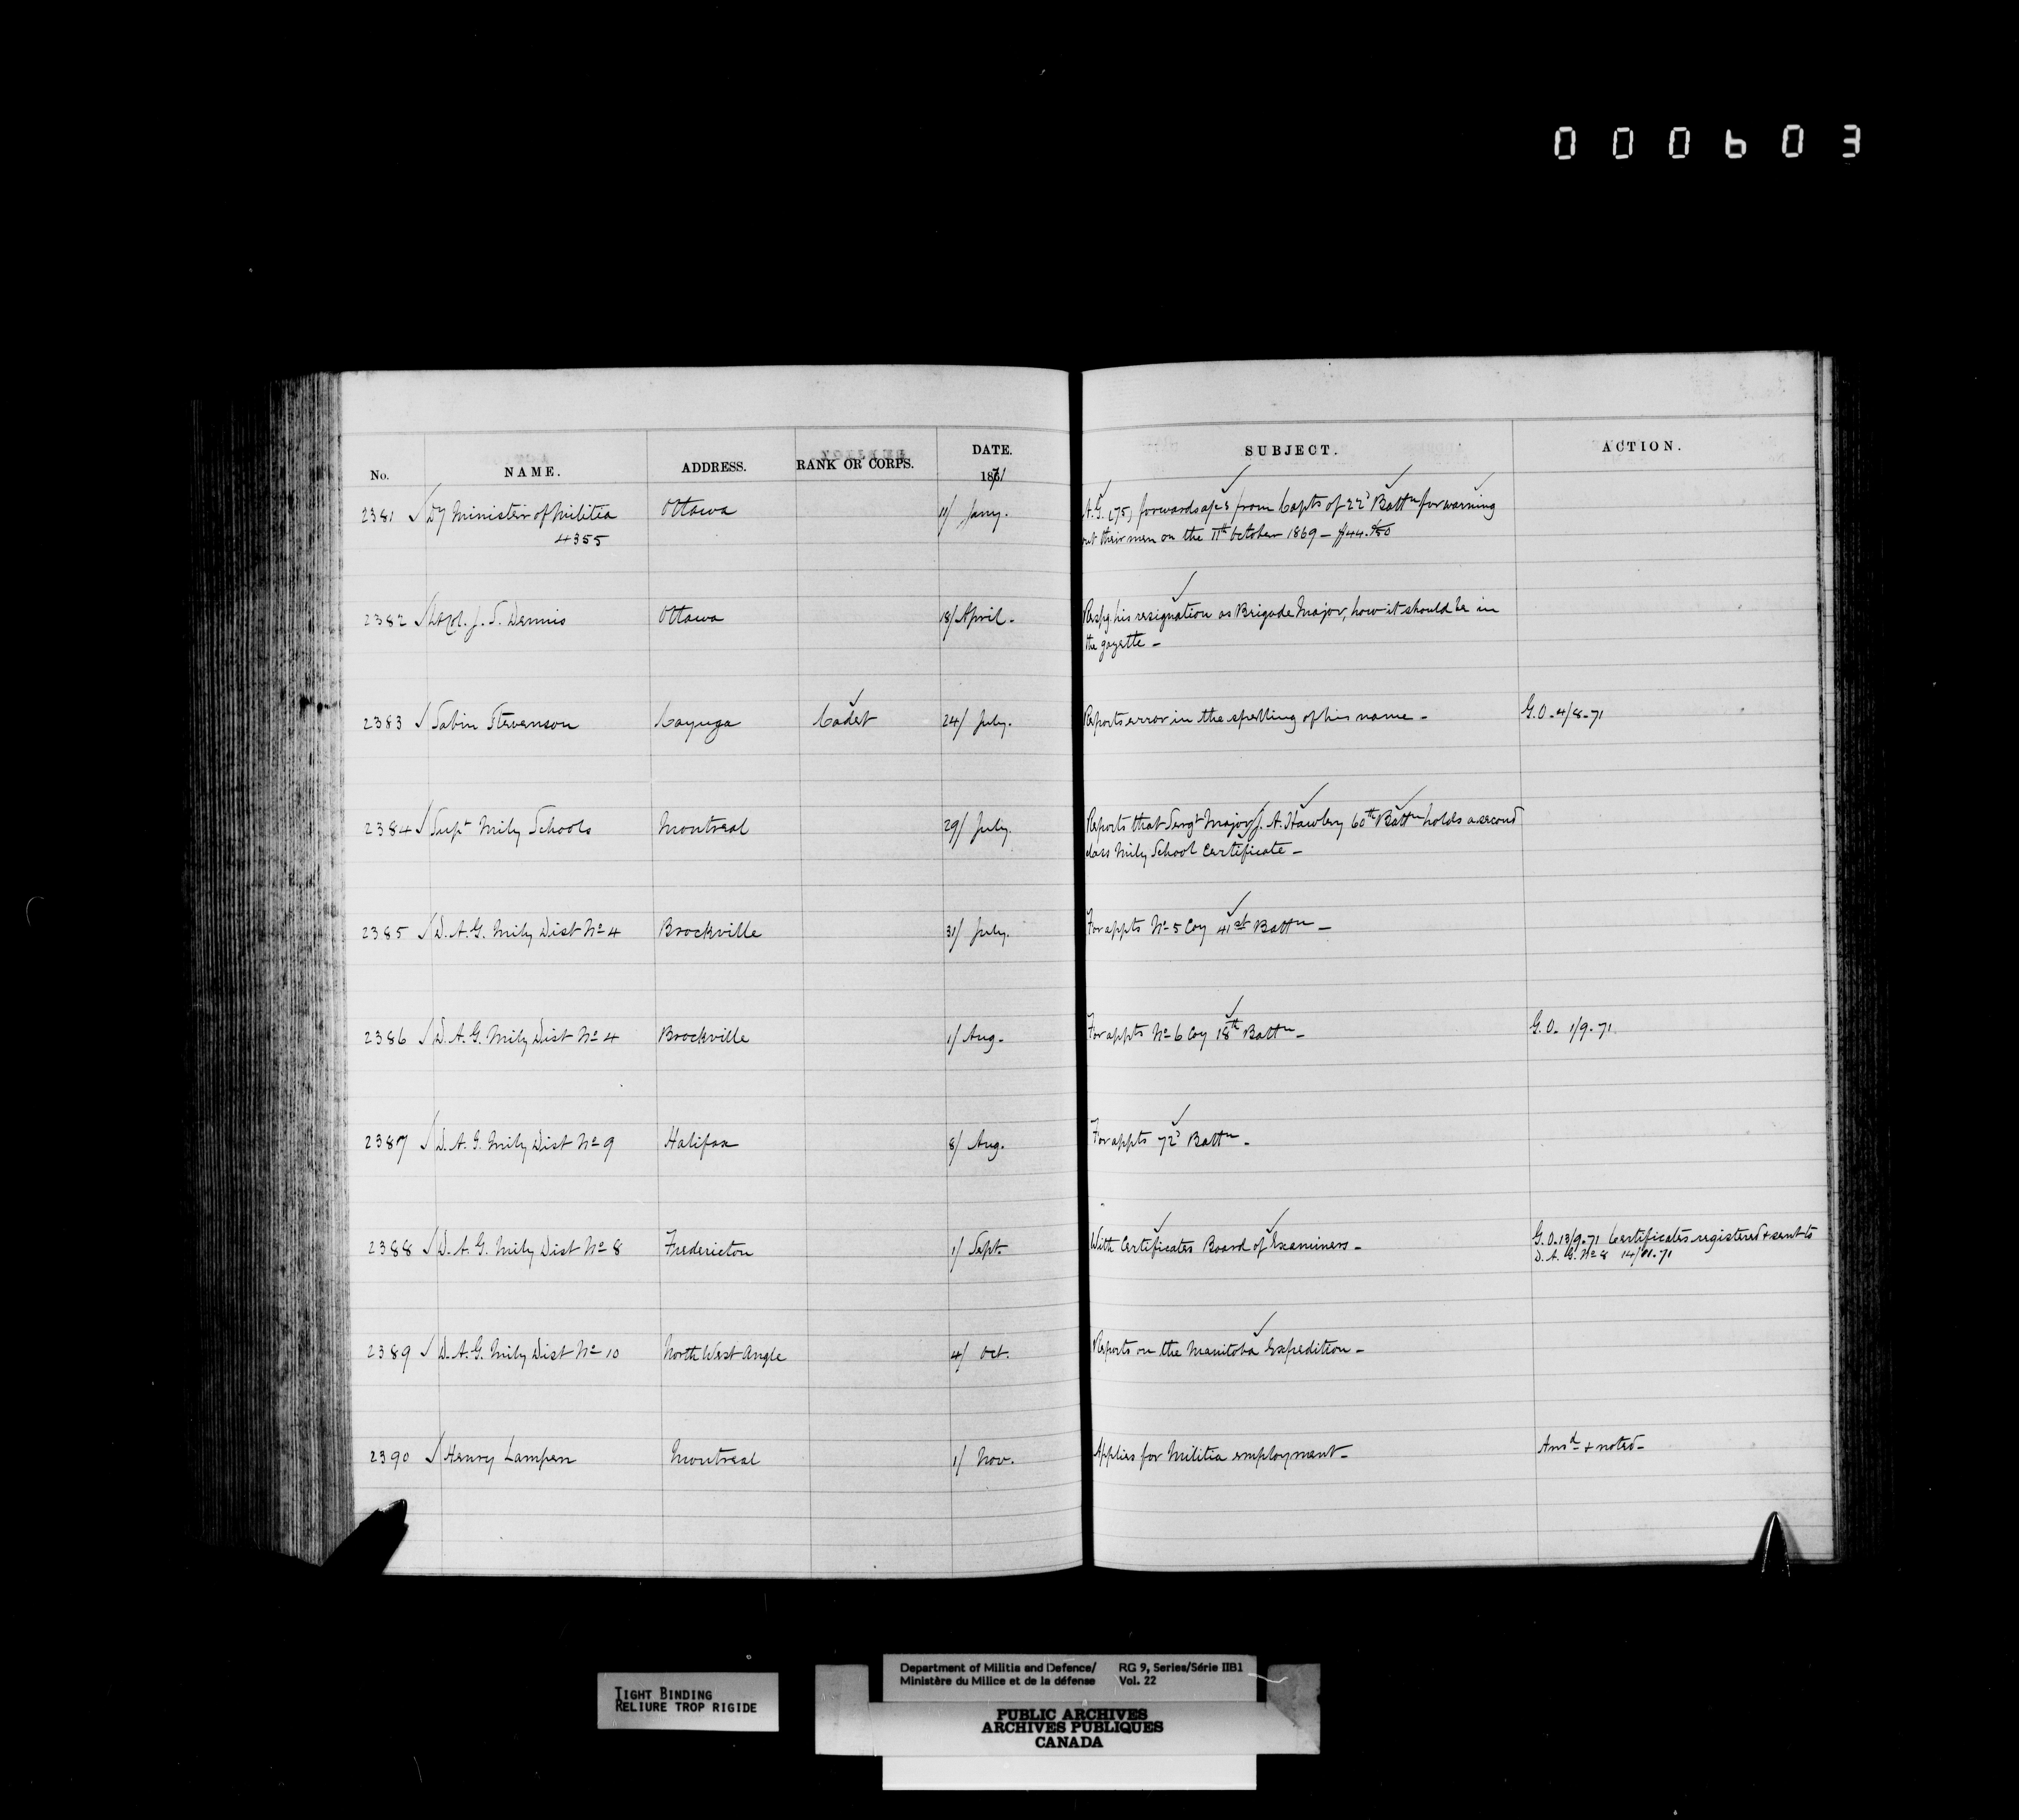 000603
No. NAME. ADDRESS. RANK OR CORPS. DATE. 1871 SUBJECT. ACTION.
2381 Dy Minister of Militia Ottawa 11/ Jany. A.G. (75) forwards apns from Capts of 22d Battn for warning
4355 out their men on the 11th October 1869 –
2382 Lt Col. J. S. Dennis Ottawa 18/ April. Respg. his resignation as Brigade Major, how it should be in
the gazette –
2383 Sabin Stevenson Cayuga Cadet 24/ July. Reports error in the spelling of his name – G.O. 4/8-71
2384 Supt Mily Schools Montreal 29/ July. Reports that Sergt Major J. A. Hawley 60th Battn holds a second
class Mily School Certificate –
2385 D.A.G. Mily Dist No 4 Brockville 31/ July. For appts No 5 Coy 41st Battn –
2386 D.A.G. Mily Dist No 4 Brockville 1/ Aug. For appts No 6 Coy 18th Battn – G.O. 1/9-71
2387 D.A.G. Mily Dist No 9 Halifax 8/ Aug. For appts 72d Battn –
2388 D.A.G. Mily Dist No 8 Fredericton 1/ Sept. With Certificates Board of Examiners – G.O. 13/9-71 Certificates registered & sent to
D.A.G. No 8 14/11-71
2389 D.A.G. Mily Dist No 10 North West Angle 4/ Oct. Reports on the Manitoba Expedition –
2390 Henry Lampen Montreal 1/ Nov. Applies for Militia employment – Ansd & noted –
TIGHT BINDING
RELIURE TROP RIGIDE
Department of Militia and Defence/ RG 9, Series/Série IIB1
Ministère du Milice et de la défense Vol. 22
PUBLIC ARCHIVES
ARCHIVES PUBLIQUES
CANADA